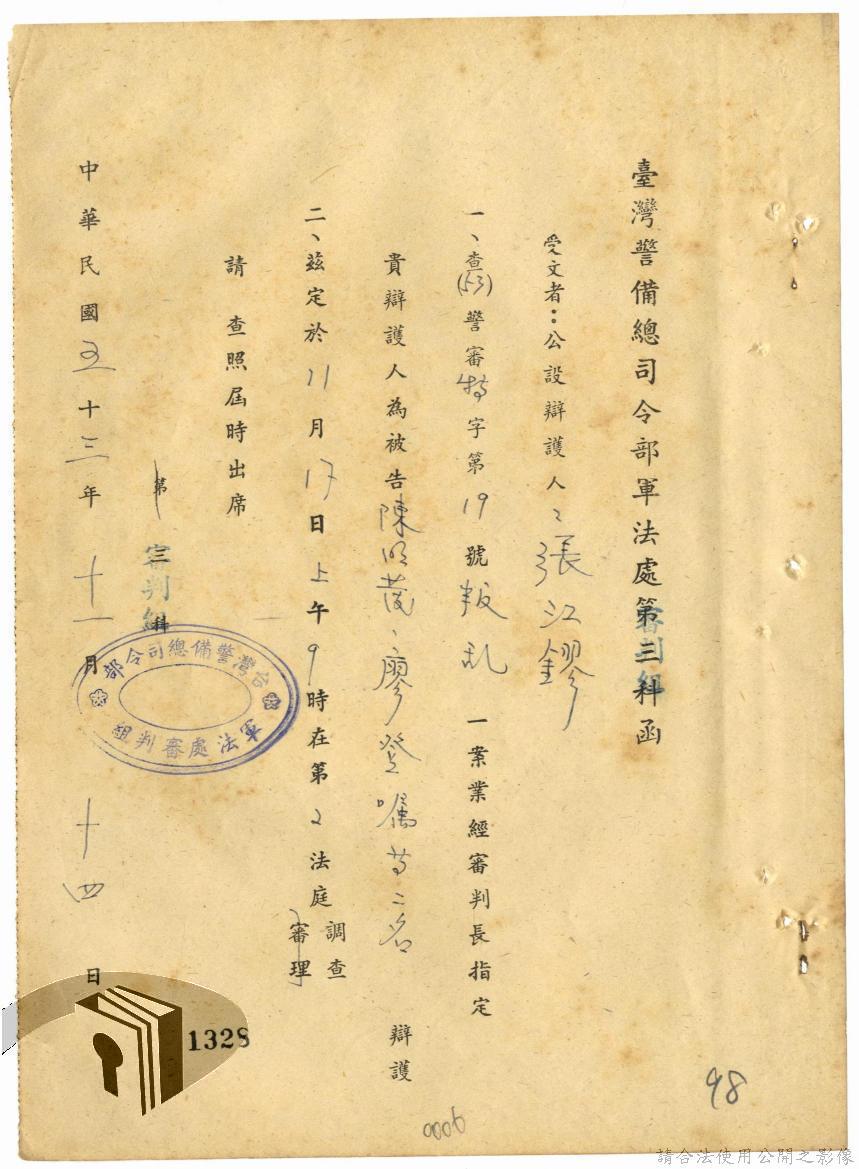 臺灣警備總司令部軍法處第三科函
審判組
受文者：公設辯護人：張江鏐
一、查(53)警審特字第19號叛乱一案業經審判長指定
貴辯護人為被告陳明發、廖登囑等二名辯護
二、茲定於11月17日上午9時在第2法庭調查
審理
請查照屆時出席
第三科
審判組
台灣警備總司令部
軍法處審判組
中華民國五十三年十一月十四日
1328
0006
98
請合法使用公開之影像